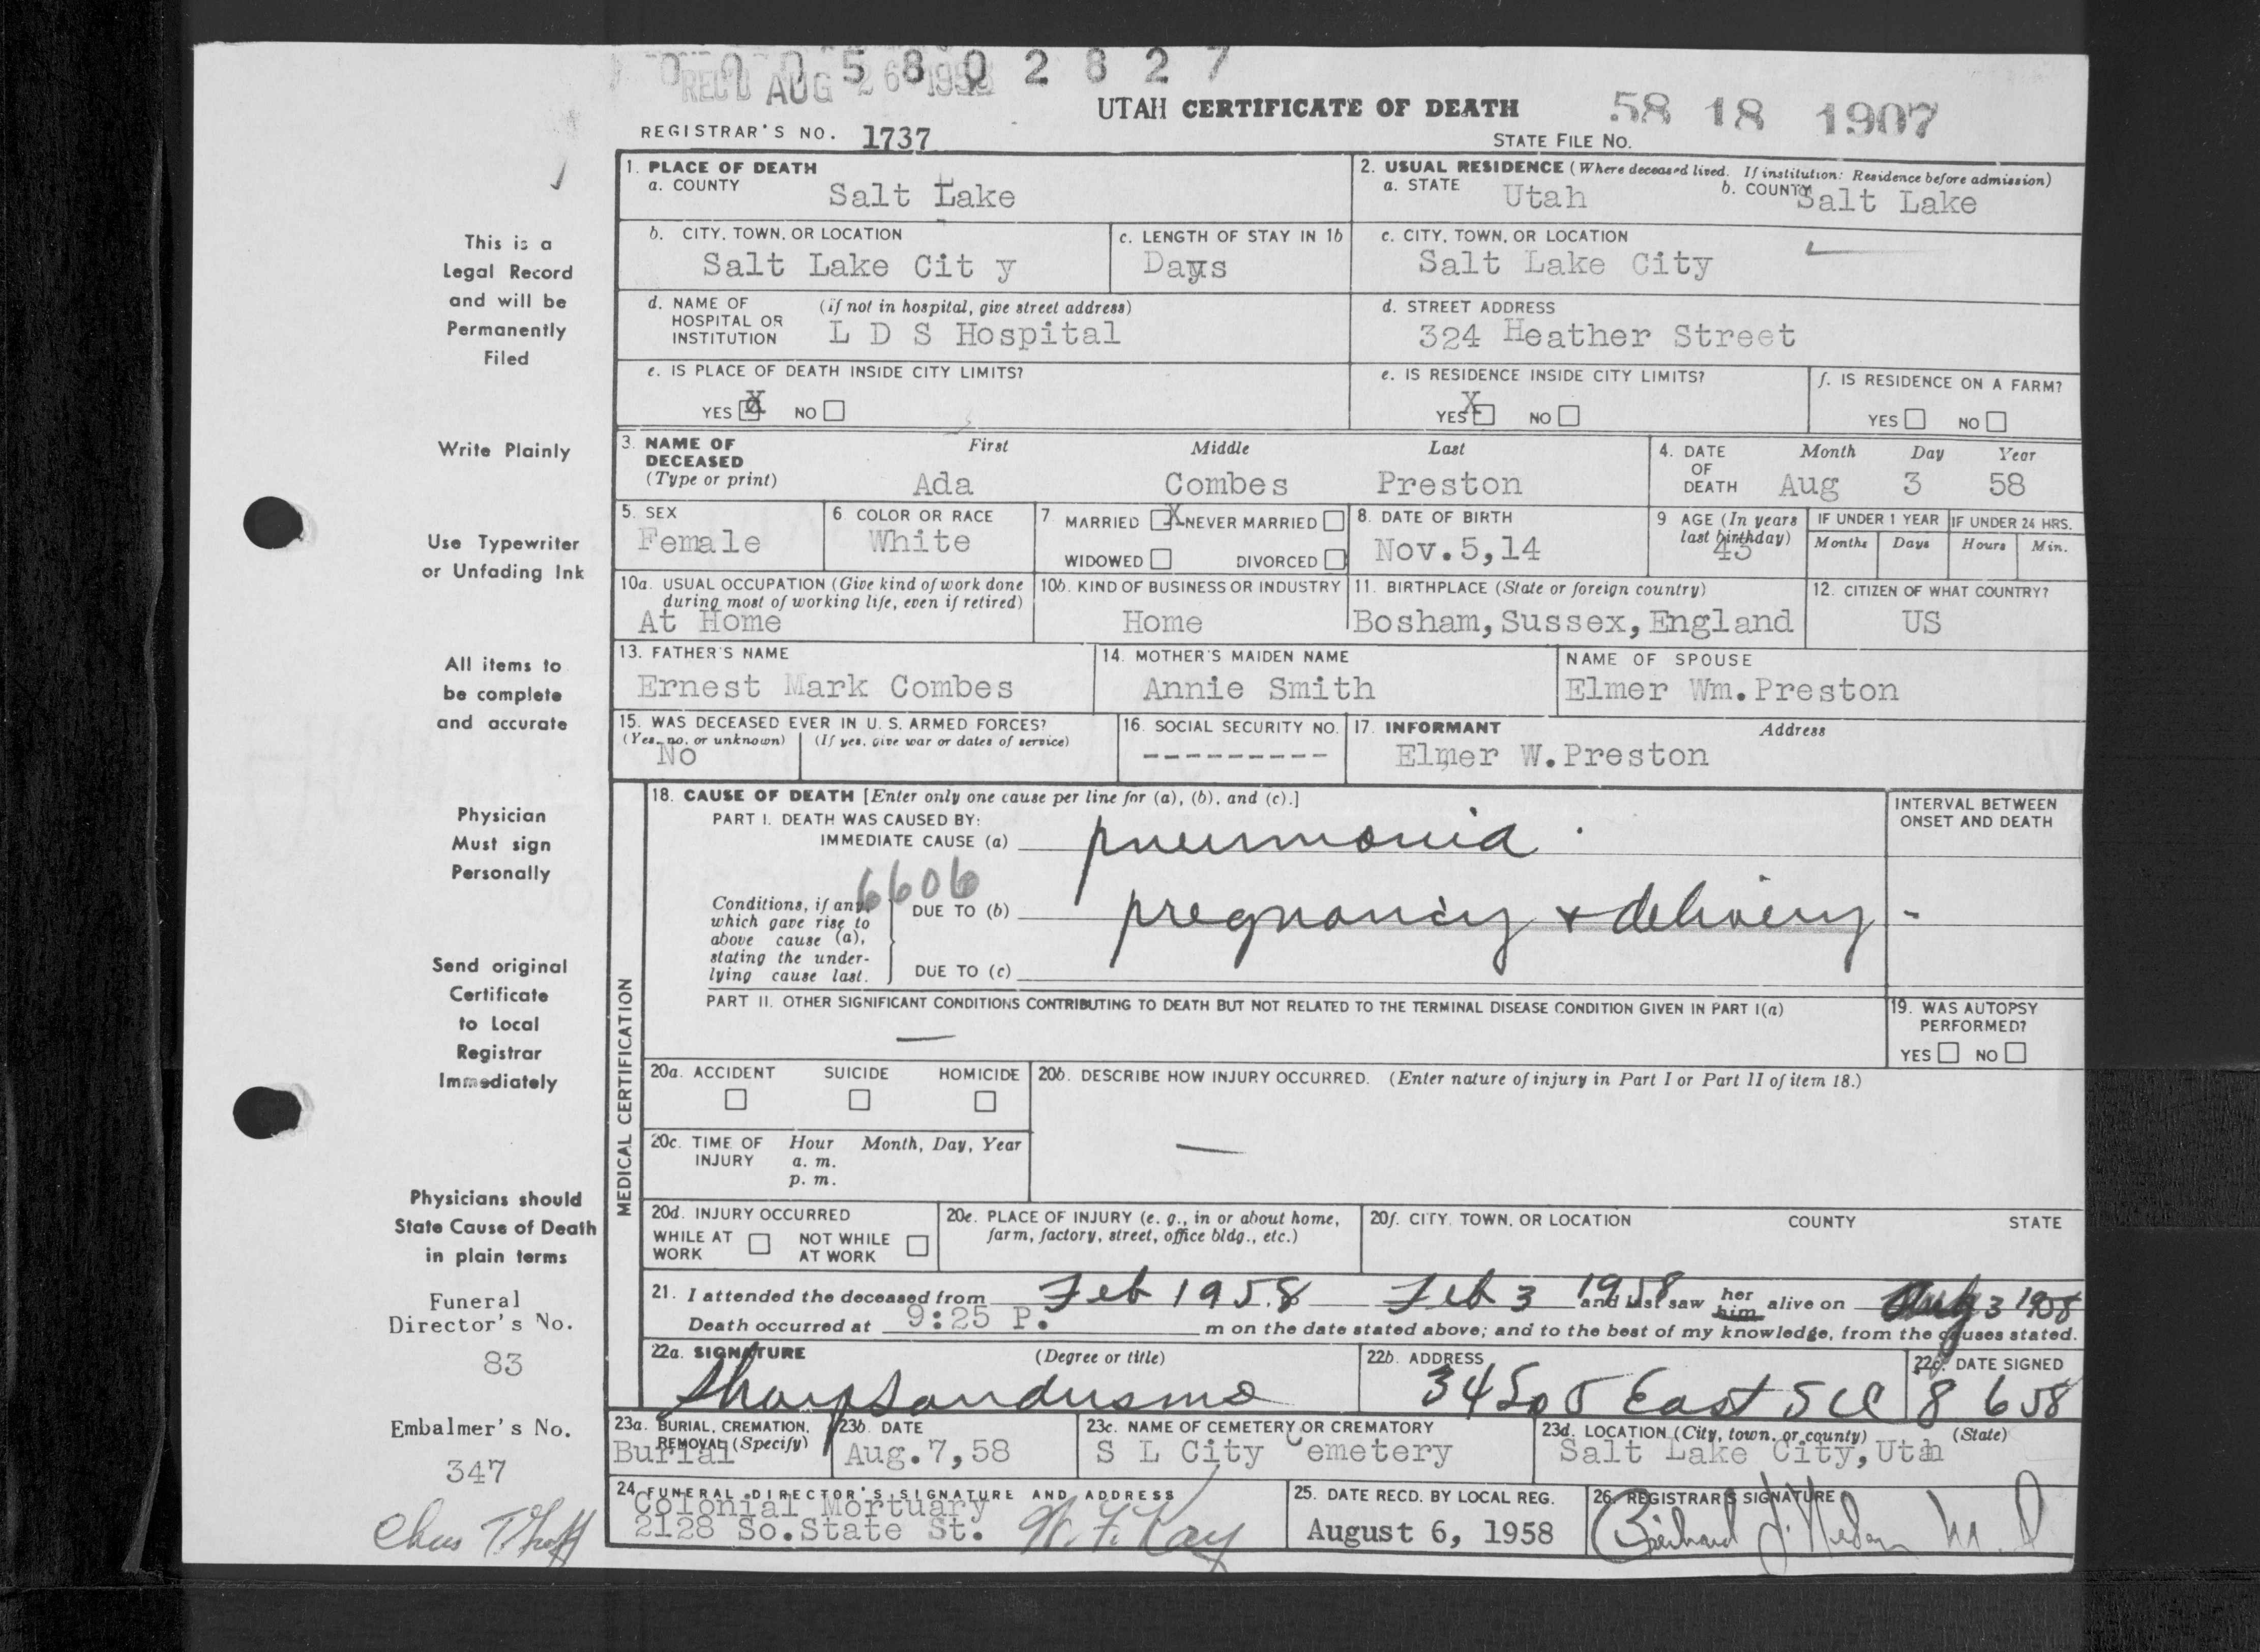 0 0 0 5 8 0 2 8 2 7
REC'D AUG 26 1958
UTAH CERTIFICATE OF DEATH
58 18 1907
REGISTRAR'S NO. 1737
STATE FILE NO.
1. PLACE OF DEATH
a. COUNTY
Salt Lake
2. USUAL RESIDENCE (Where deceased lived. If institution: Residence before admission)
a. STATE Utah b. COUNTY Salt Lake
b. CITY, TOWN, OR LOCATION
Salt Lake Cit y
c. LENGTH OF STAY IN 1b
Days
c. CITY, TOWN, OR LOCATION
Salt Lake City
d. NAME OF HOSPITAL OR INSTITUTION (if not in hospital, give street address)
L D S Hospital
d. STREET ADDRESS
324 Heather Street
e. IS PLACE OF DEATH INSIDE CITY LIMITS?
YES X NO
e. IS RESIDENCE INSIDE CITY LIMITS?
YES X NO
f. IS RESIDENCE ON A FARM?
YES NO
3. NAME OF DECEASED (Type or print)
First Middle Last
Ada Combes Preston
4. DATE OF DEATH Month Day Year
Aug 3 58
5. SEX
Female
6. COLOR OR RACE
White
7. MARRIED X NEVER MARRIED
WIDOWED DIVORCED
8. DATE OF BIRTH
Nov.5,14
9. AGE (In years last birthday)
43
IF UNDER 1 YEAR
Months Days
IF UNDER 24 HRS.
Hours Min.
10a. USUAL OCCUPATION (Give kind of work done during most of working life, even if retired)
At Home
10b. KIND OF BUSINESS OR INDUSTRY
Home
11. BIRTHPLACE (State or foreign country)
Bosham, Sussex, England
12. CITIZEN OF WHAT COUNTRY?
US
13. FATHER'S NAME
Ernest Mark Combes
14. MOTHER'S MAIDEN NAME
Annie Smith
NAME OF SPOUSE
Elmer Wm. Preston
15. WAS DECEASED EVER IN U. S. ARMED FORCES?
(Yes, no, or unknown) (If yes, give war or dates of service)
No
16. SOCIAL SECURITY NO.
---------
17. INFORMANT Address
Elmer W. Preston
MEDICAL CERTIFICATION
18. CAUSE OF DEATH [Enter only one cause per line for (a), (b), and (c).]
PART I. DEATH WAS CAUSED BY:
IMMEDIATE CAUSE (a) pneumonia
6606
Conditions, if any, which gave rise to above cause (a), stating the underlying cause last.
DUE TO (b) pregnancy + delivery -
DUE TO (c)
INTERVAL BETWEEN ONSET AND DEATH
PART II. OTHER SIGNIFICANT CONDITIONS CONTRIBUTING TO DEATH BUT NOT RELATED TO THE TERMINAL DISEASE CONDITION GIVEN IN PART I(a)
—
19. WAS AUTOPSY PERFORMED?
YES NO
20a. ACCIDENT SUICIDE HOMICIDE
20b. DESCRIBE HOW INJURY OCCURRED. (Enter nature of injury in Part I or Part II of item 18.)
—
20c. TIME OF INJURY Hour Month, Day, Year
a. m.
p. m.
20d. INJURY OCCURRED
WHILE AT WORK NOT WHILE AT WORK
20e. PLACE OF INJURY (e. g., in or about home, farm, factory, street, office bldg., etc.)
20f. CITY, TOWN, OR LOCATION COUNTY STATE
21. I attended the deceased from Feb 1958 Feb 3 1958 and last saw her him alive on Aug 3 1958
Death occurred at 9:25 P. m on the date stated above; and to the best of my knowledge, from the causes stated.
22a. SIGNATURE (Degree or title)
22b. ADDRESS
34 So 5 East SLC
22c. DATE SIGNED
8 6 58
23a. BURIAL, CREMATION, REMOVAL (Specify)
Burial
23b. DATE
Aug. 7, 58
23c. NAME OF CEMETERY OR CREMATORY
S L City Cemetery
23d. LOCATION (City, town, or county) (State)
Salt Lake City, Utah
24. FUNERAL DIRECTOR'S SIGNATURE AND ADDRESS
Colonial Mortuary
2128 So. State St. W. F. Kay
25. DATE RECD. BY LOCAL REG.
August 6, 1958
26. REGISTRAR'S SIGNATURE
This is a
Legal Record
and will be
Permanently
Filed
Write Plainly
Use Typewriter
or Unfading Ink
All items to
be complete
and accurate
Physician
Must sign
Personally
Send original
Certificate
to Local
Registrar
Immediately
Physicians should
State Cause of Death
in plain terms
Funeral
Director's No.
83
Embalmer's No.
347